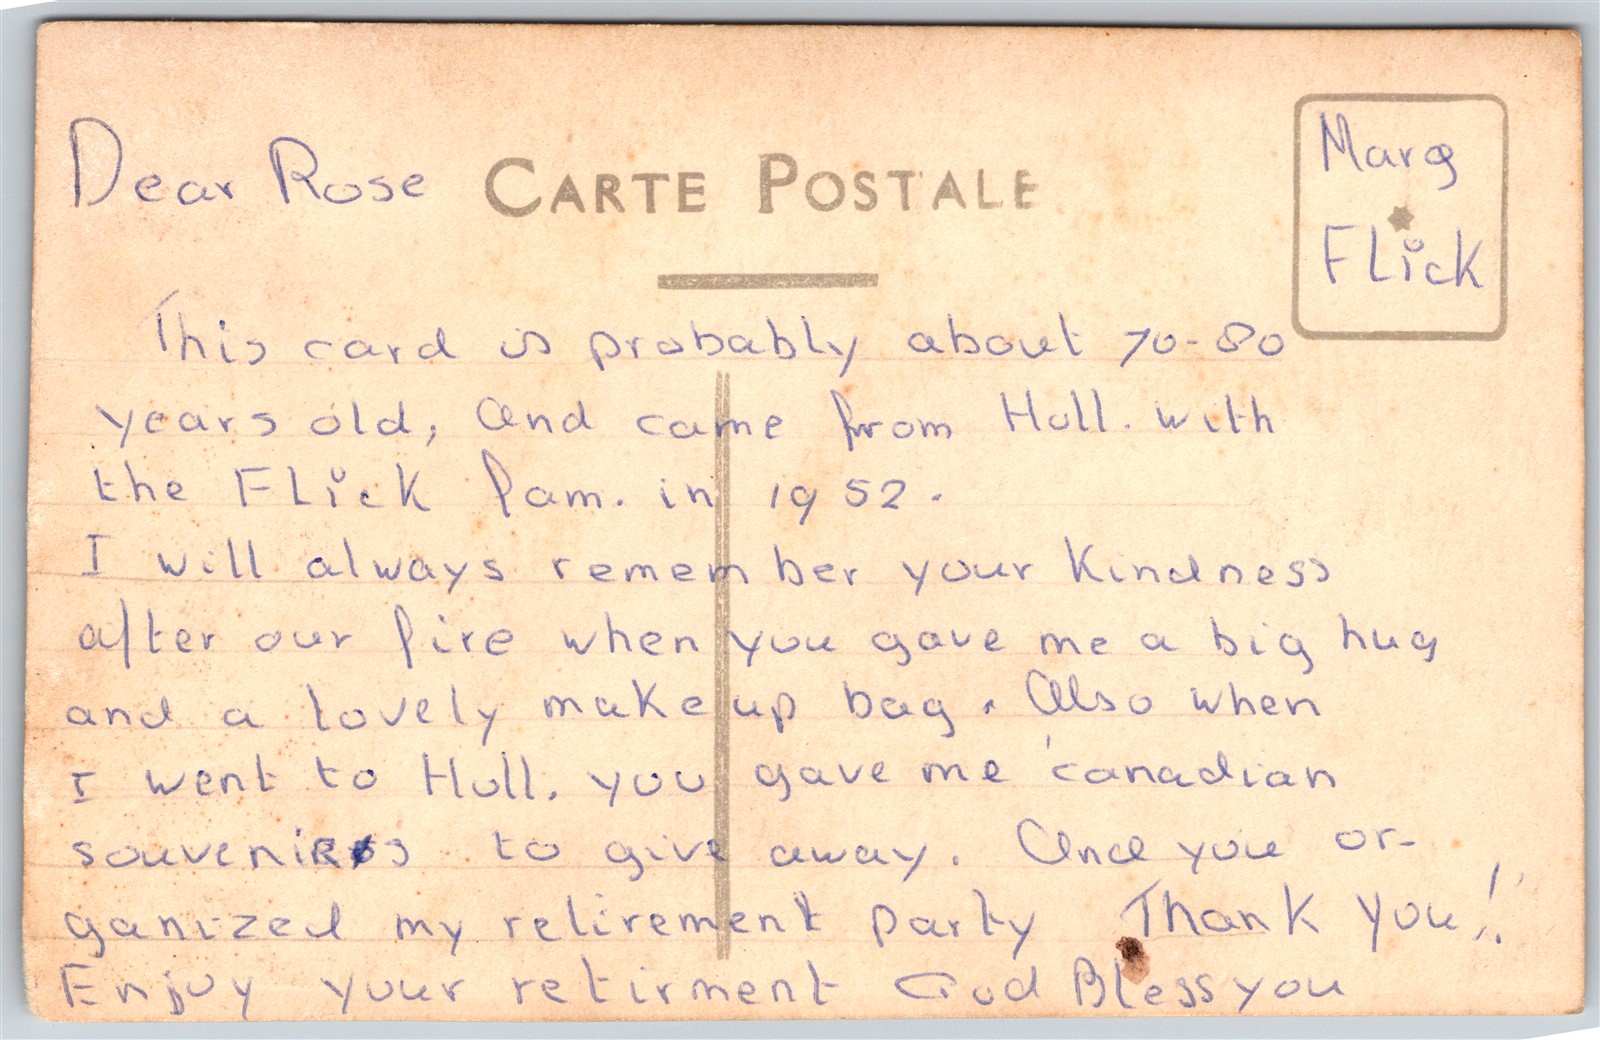 Dear Rose CARTE POSTALE
Marg
FLick
This card is probably about 70-80
years old, and came from Holl. with
the FLick fam. in 1952.
I will always remember your Kindness
after our fire when you gave me a big hug
and a lovely make up bag. Also when
I went to Holl. you gave me canadian
souvenirs to give away. And you or-
ganized my retirement party Thank You!!
Enjoy your retirment God Bless you